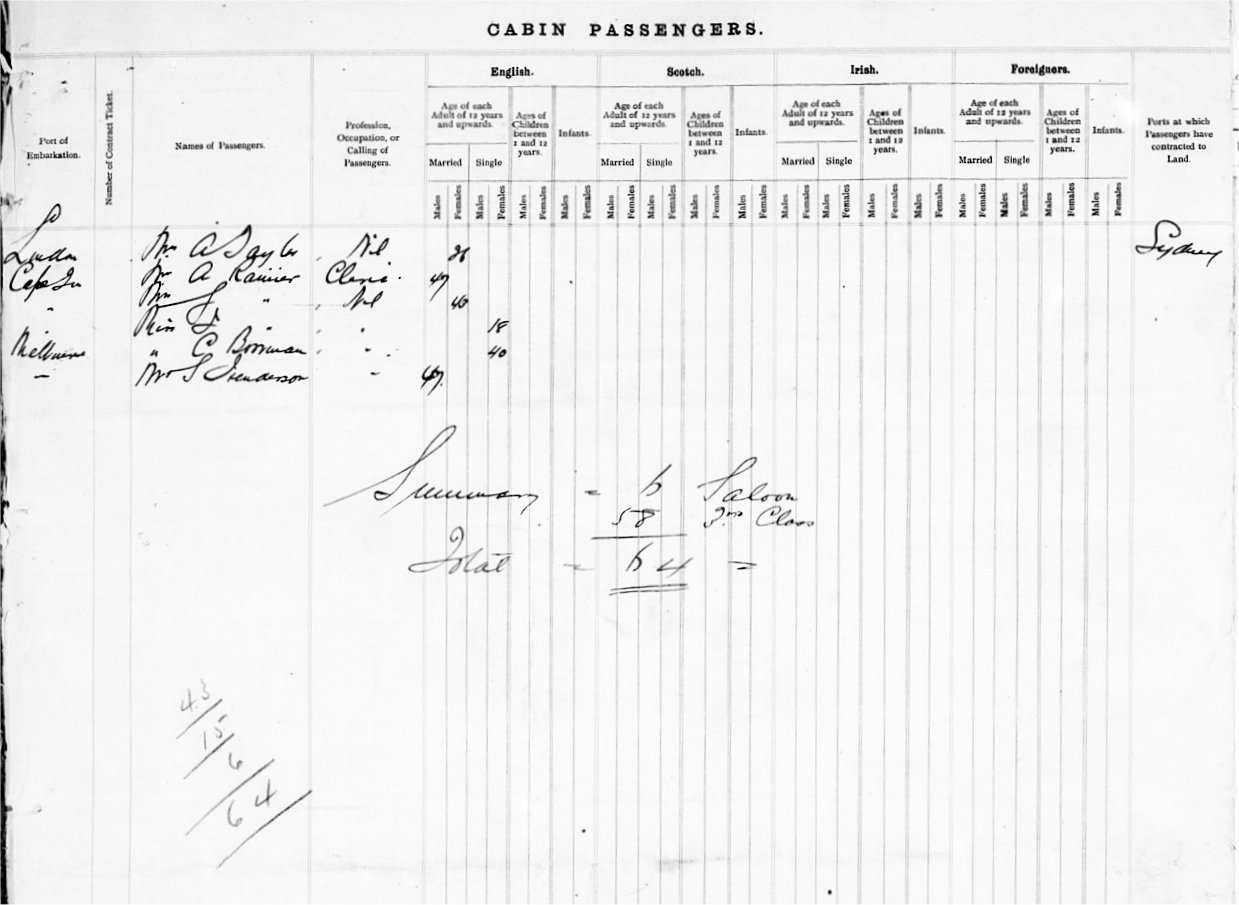 CABIN PASSENGERS.
English. Scotch. Irish. Foreigners.
Port of Embarkation. Number of Contract Ticket. Names of Passengers. Profession, Occupation, or Calling of Passengers. Age of each Adult of 12 years and upwards. Ages of Children between 1 and 12 years. Infants. Age of each Adult of 12 years and upwards. Ages of Children between 1 and 12 years. Infants. Age of each Adult of 12 years and upwards. Ages of Children between 1 and 12 years. Infants. Age of each Adult of 12 years and upwards. Ages of Children between 1 and 12 years. Infants. Ports at which Passengers have contracted to Land.
Married Single Married Single Married Single Married Single
Males Females Males Females Males Females Males Females Males Females Males Females Males Females Males Females Males Females Males Females Males Females Males Females Males Females Males Females Males Females Males Females
London Mrs A Taylor Nil Sydney
Cape Tn Mr A Rainier 47
" Mrs " Nil 40
Miss " " 18
Melbourne " C " 40
Mr S Henderson " 47
Summary = 6 Saloon
58 3rd Class
Total = 64 =
43/
15/
6/
64/